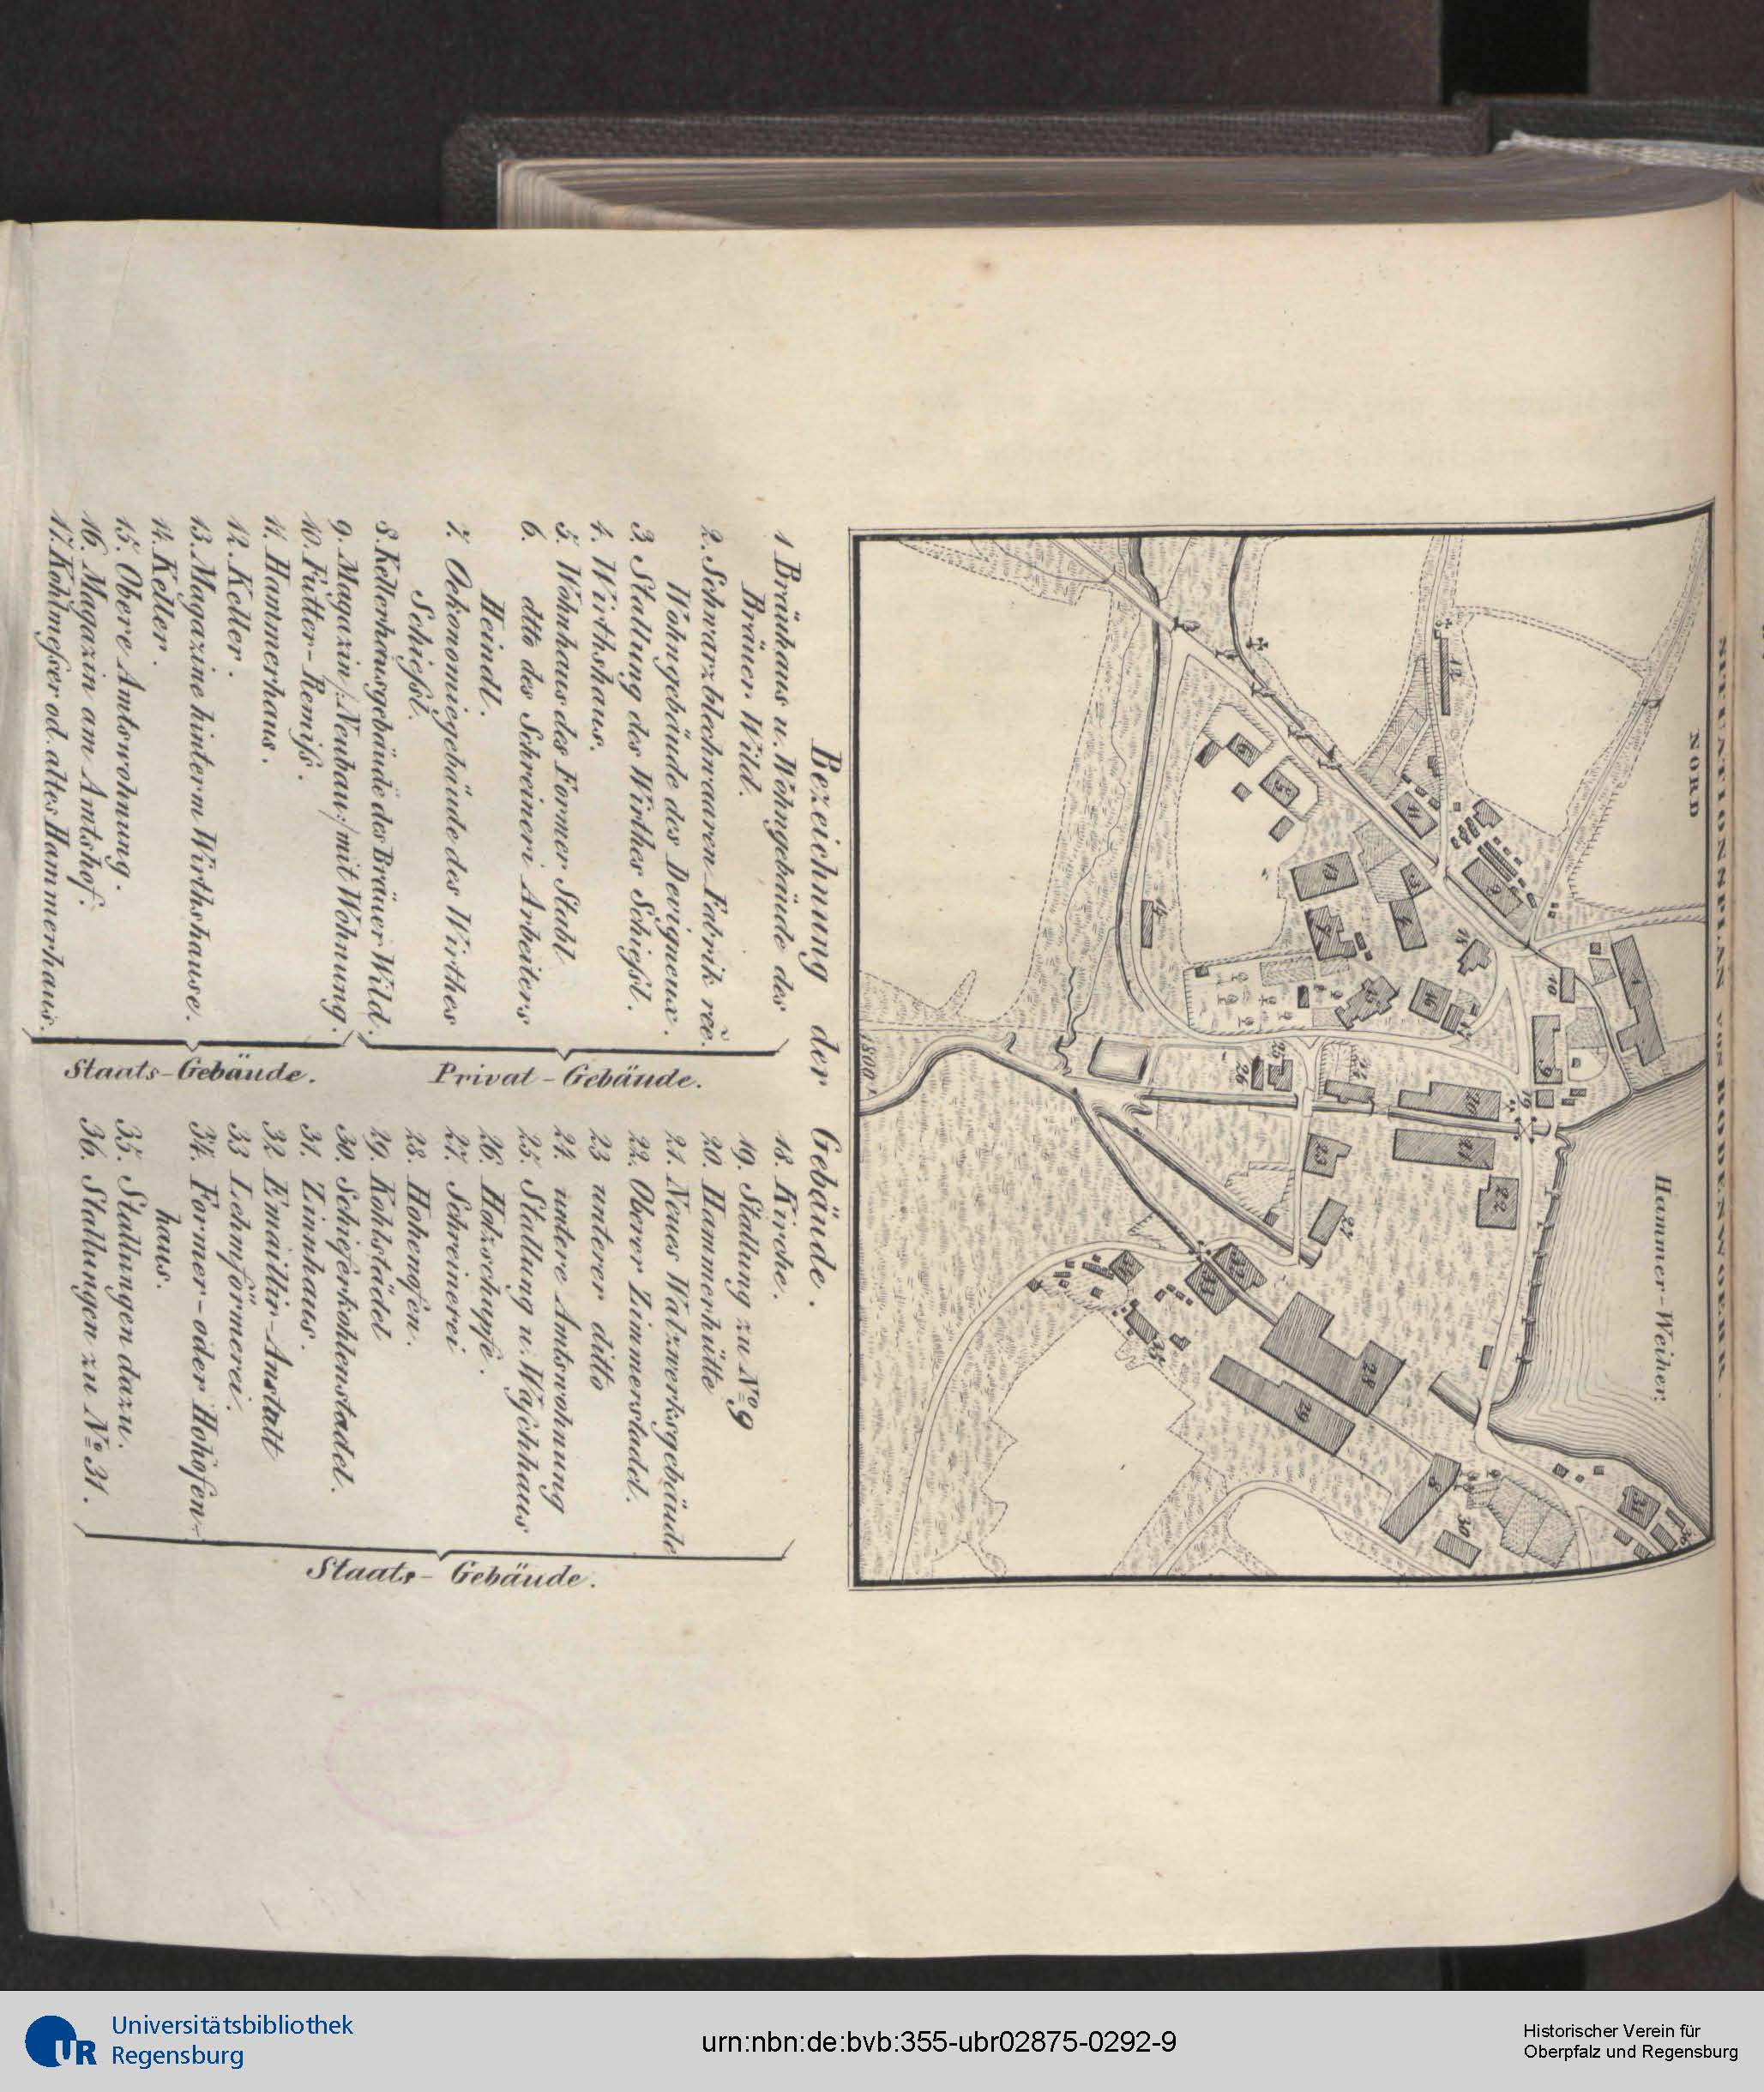 SITUATIONSPLAN VON BODENWOEHR.
NORD
Hammer-Weiher.
1800'
Bezeichnung der Gebäude.
1 Bräuhaus u. Wohngebäude des
Bräuer Wild.
2. Schwarzblechwaaren-Fabrik rēē.
Wohngebäude des Devigneux.
3. Stallung des Wirthes Schießl.
4. Wirthshaus.
5. Wohnhaus des Former Stahl
6. dtto des Schreinerei Arbeiters
Heindl.
7. Oekonomiegebäude des Wirthes
Schießl.
8. Kellerhausgebäude des Bräuer Wild.
Privat-Gebäude.
9. Magazin /:Neubau:/ mit Wohnung.
10. Futter-Remiß.
11. Hammerhaus.
12. Keller.
13. Magazine hinterm Wirthshause.
14. Keller.
15. Obere Amtswohnung.
16. Magazin am Amtshof.
17. Kohlmeßer od. altes Hammerhaus.
Staats-Gebäude.
18. Kirche.
19. Stallung zu No 9
20. Hammerhütte
21. Neues Walzwerksgebäude
22. Oberer Zimmerstadel.
23 unterer ditto
24. untere Amtswohnung
25. Stallung u. Waschhaus
26. Holzschupfe.
27. Schreinerei
28. Hohengfen.
29. Kohlstädel
30. Schieferkohlenstadel.
31. Zinnhaus.
32. Emaillir-Anstalt
33 Lehmförmerei.
34. Former- oder Hohofen-
haus.
35. Stallungen dazu.
36. Stallungen zu No 31.
Staats-Gebäude.
Universitätsbibliothek
Regensburg
urn:nbn:de:bvb:355-ubr02875-0292-9
Historischer Verein für
Oberpfalz und Regensburg
UR